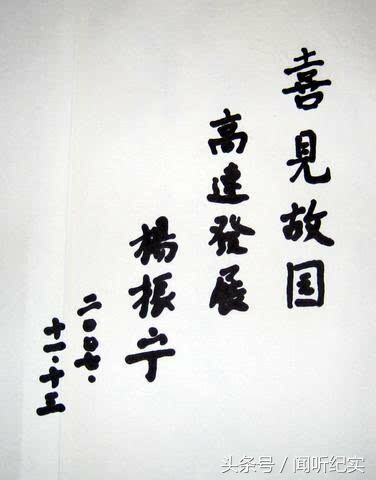 喜見故国
高速發展
楊振宁
二〇〇七.
十一.十三
头条号 / 闻听纪实